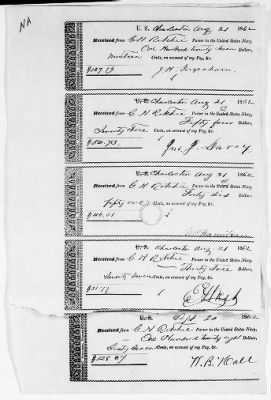 NA
U. S. Charleston Aug 21 1862
Received from C H Ritchie Purser in the United States Navy,
One Hundred Twenty Seven Dollars,
Nineteen Cents, on account of my Pay, &c.
$127.19
U.S. Charleston Aug 21 1862
Received from C. H Ritchie Purser in the United States Navy,
Fifty four Dollars,
Seventy three Cents, on account of my Pay, &c.
$54.73
U.S. Charleston Aug 21 1862
Received from C H Ritchie Purser in the United States Navy,
Forty six Dollars,
Fifty one Cents, on account of my Pay, &c.
$46.51
U.S. Charleston Aug 21 1862
Received from C H Ritchie Purser in the United States Navy,
Dollars,
Seventy seven Cents, on account of my Pay, &c.
U.S. Sept 20 1862
Received from C H Ritchie Purser in the United States Navy,
One Hundred Twenty eight Dollars,
Sixty seven Cents, on account of my Pay, &c.
$128.67 W. B. Hall